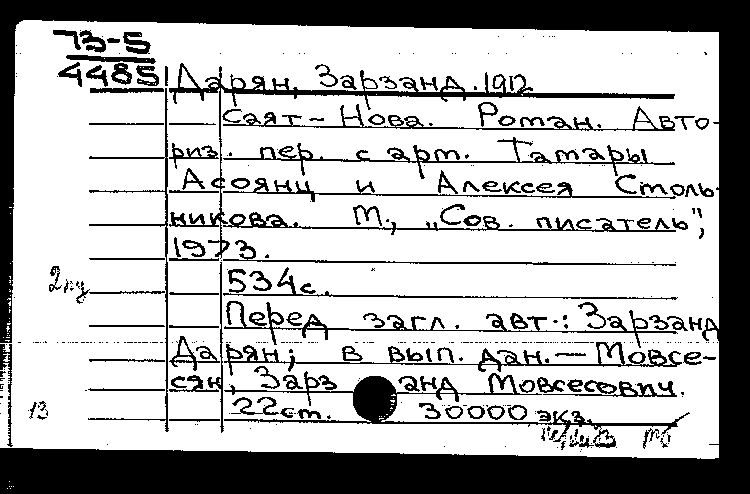 73-5
4485
Дарян, Зарзанд. 1912
Саят-Нова. Роман. Авто-
риз. пер. с арм. Тамары
Асоянц и Алексея Столь-
никова. М., „Сов. писатель",
1973.
534с.
Перед загл. авт.: Зарзанд
Дарян; в вып. дан. — Мовсе-
сян, Зарзанд Мовсесович.
22см. 30000 экз.
13